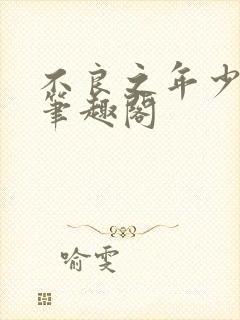 不良之年少
筆趣閣
喻雯